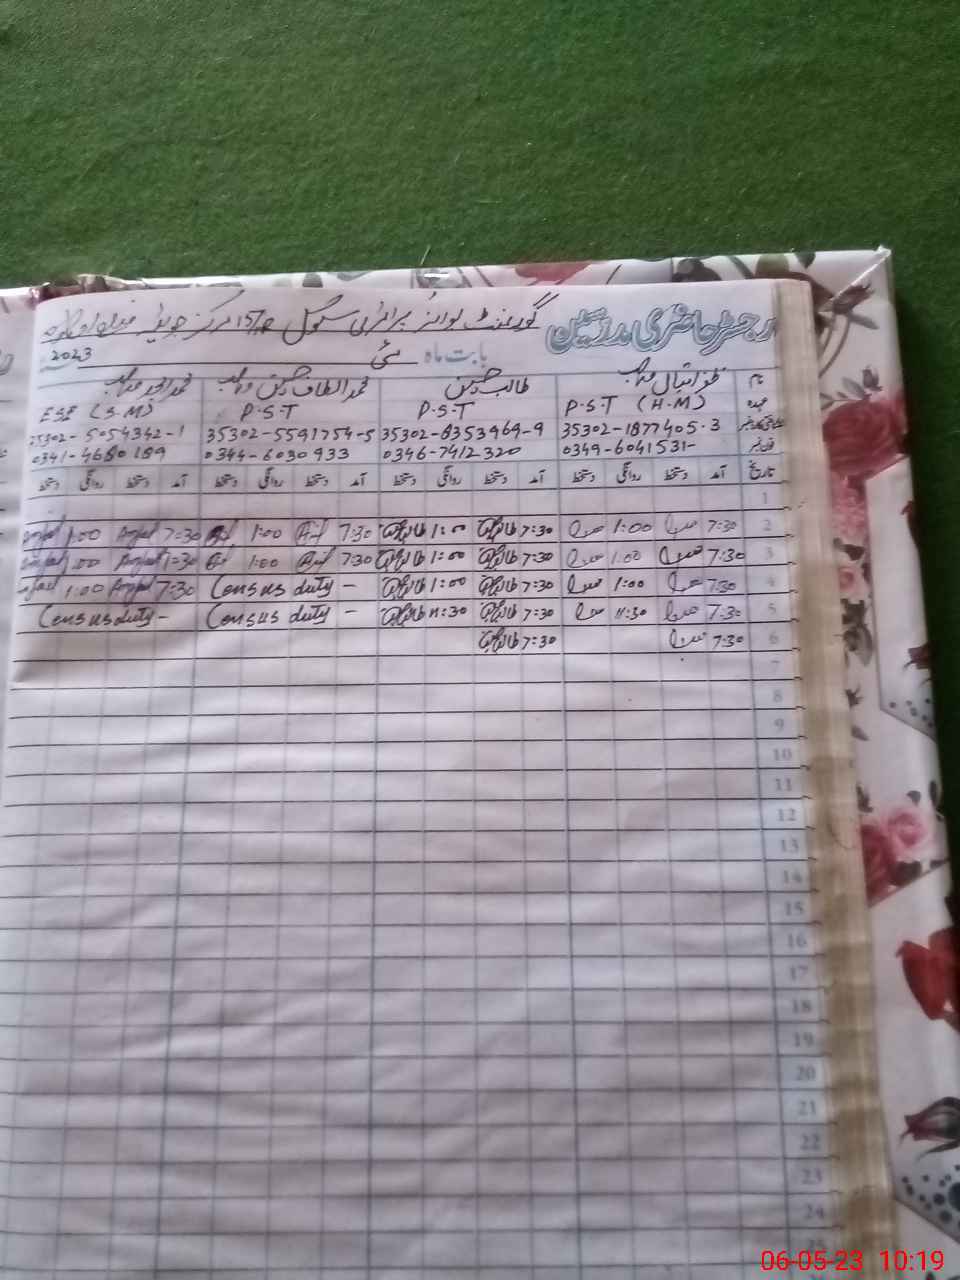 گورنمنٹ بوائز پرائمری سکول
رجسٹر حاضری مدرسین
بابت ماہ مئی 2023
نام
ظفر اقبال صاحب طالب حسین محمد الطاف حسین محمد امجد صاحب
عہدہ P.S.T (H.M) P.S.T P.S.T ESE (S.M)
35302-1877405-3 35302-8353969-9 35302-5591754-5 35302-5054342-1
0349-6041531- 0346-7412320 0344-6030933 0341-4680189
تاریخ آمد دستخط روانگی دستخط آمد دستخط روانگی دستخط آمد دستخط روانگی دستخط آمد دستخط روانگی دستخط
1
2 7:30 1:00 7:30 طالب حسین 1:00 طالب حسین 7:30 1:00 7:30 Amjad 1:00 Amjad
3 7:30 1:00 7:30 طالب حسین 1:00 طالب حسین 7:30 1:00 7:30 Amjad 1:00 Amjad
4 7:30 1:00 7:30 طالب حسین 1:00 طالب حسین Census duty - 7:30 Amjad 1:00 Amjad
5 7:30 11:30 7:30 طالب حسین 11:30 طالب حسین Census duty - Census duty -
6 7:30 7:30 طالب حسین
7
8
9
10
11
12
13
14
15
16
17
18
19
20
21
22
23
24
25
06-05-23 10:19